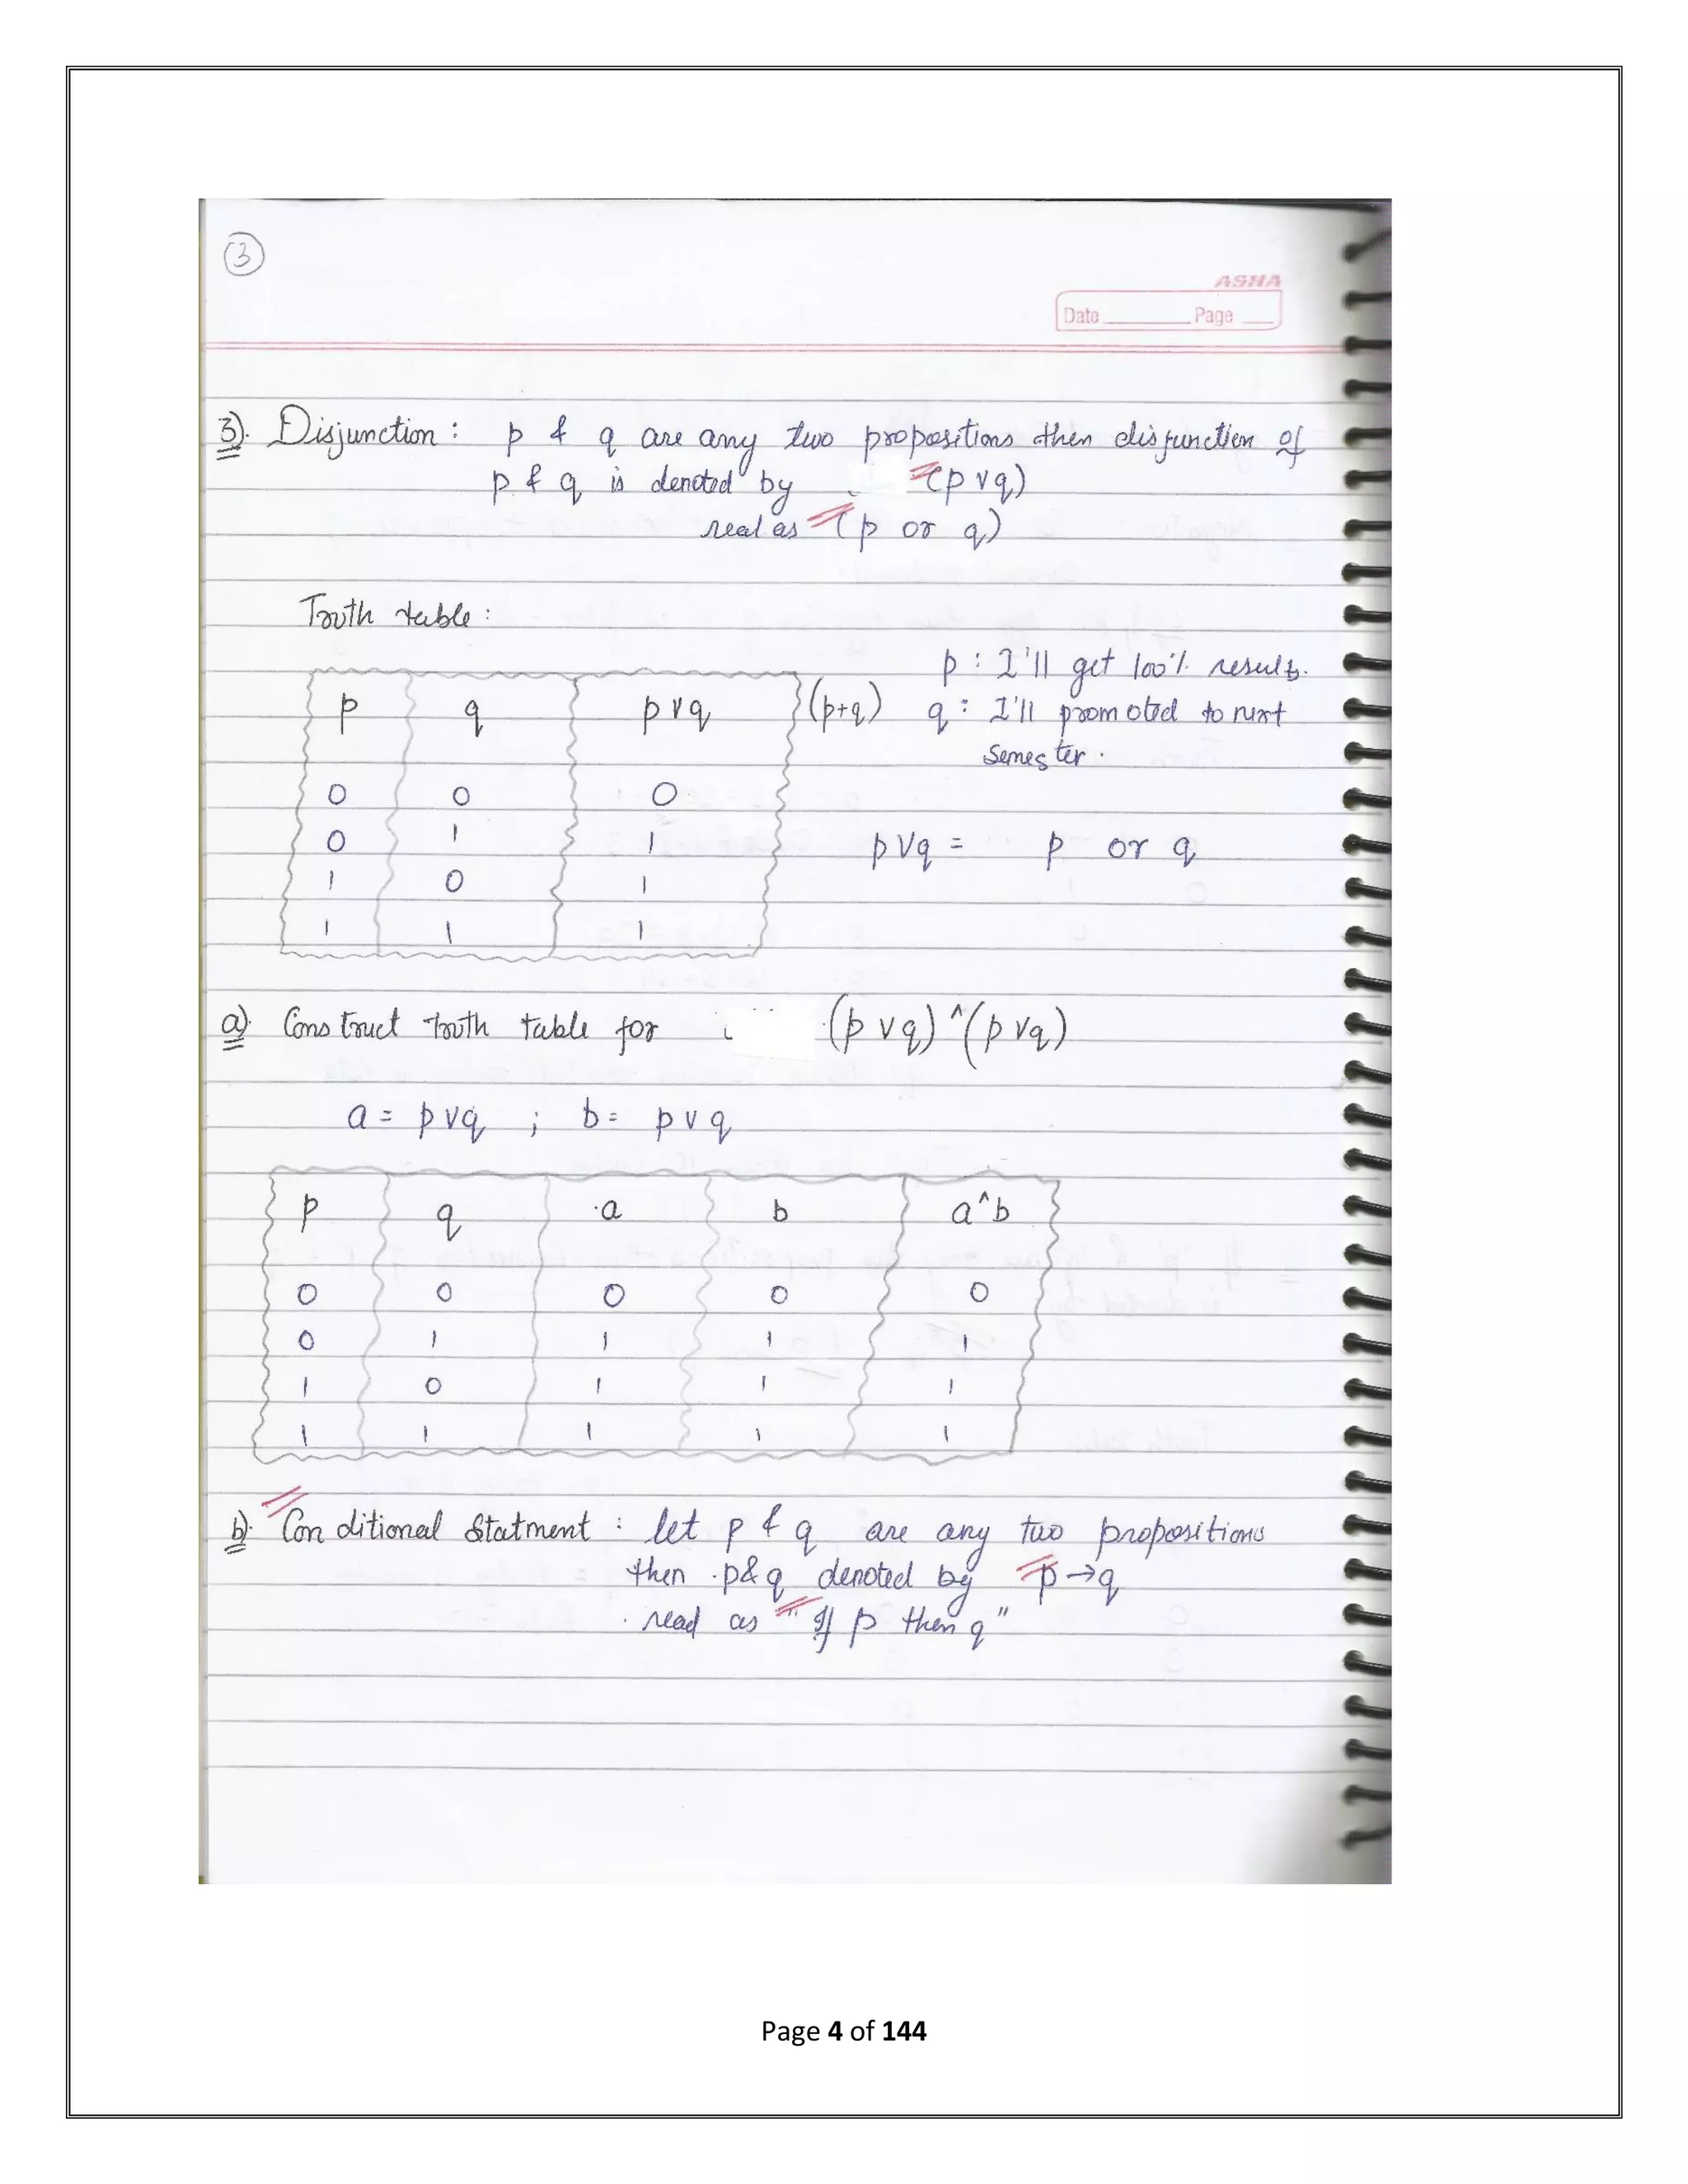 3
ASNA
Date ________ Page ___
3). Disjunction : p & q are any two propositions then disjunction of
p & q is denoted by (p ∨ q)
read as (p or q)
Truth table :
p q p ∨ q (p+q)
0 0 0
0 1 1
1 0 1
1 1 1
p : I'll get 100% results.
q : I'll promoted to next
semester.
p ∨ q = p or q
a). Construct truth table for (p ∨ q) ^ (p ∨ q)
a = p ∨ q ; b = p ∨ q
p q a b a ^ b
0 0 0 0 0
0 1 1 1 1
1 0 1 1 1
1 1 1 1 1
b). Conditional Statment : let p & q are any two propositions
then p & q denoted by p → q
read as "If p then q"
Page 4 of 144